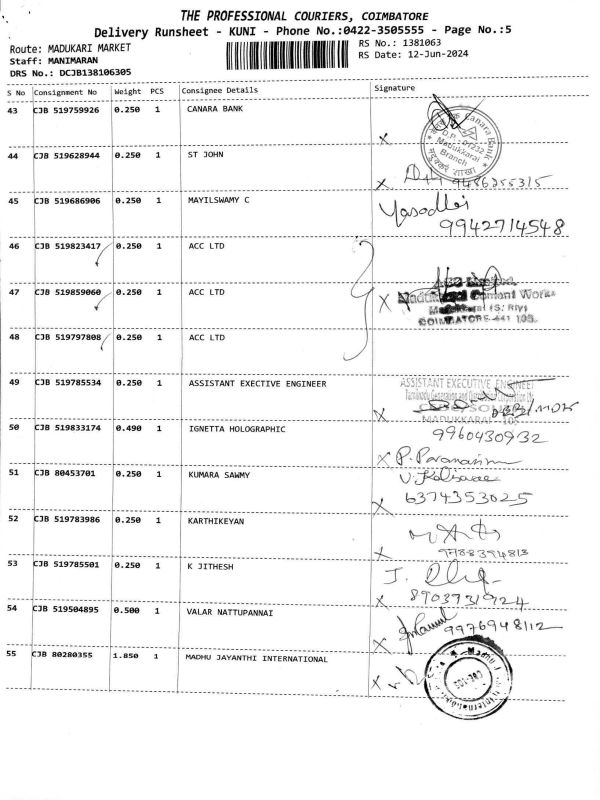 THE PROFESSIONAL COURIERS, COIMBATORE
Delivery Runsheet - KUNI - Phone No.:0422-3505555 - Page No.:5
Route: MADUKARI MARKET RS No.: 1381063
Staff: MANIMARAN RS Date: 12-Jun-2024
DRS No.: DCJB138106305
S No Consignment No Weight PCS Consignee Details Signature
43 CJB 519759926 0.250 1 CANARA BANK
Canara Bank
Madukkarai
Branch
44 CJB 519628944 0.250 1 ST JOHN
9486255315
45 CJB 519686906 0.250 1 MAYILSWAMY C
9942714548
46 CJB 519823417 0.250 1 ACC LTD
47 CJB 519859060 0.250 1 ACC LTD
Cement Works
COIMBATORE-641 105.
48 CJB 519797808 0.250 1 ACC LTD
49 CJB 519785534 0.250 1 ASSISTANT EXECTIVE ENGINEER
ASSISTANT EXECUTIVE ENGINEER
MADUKKARAI
50 CJB 519833174 0.490 1 IGNETTA HOLOGRAPHIC
9960430932
51 CJB 80453701 0.250 1 KUMARA SAWMY
6374353025
52 CJB 519783986 0.250 1 KARTHIKEYAN
9788394813
53 CJB 519785501 0.250 1 K JITHESH
8903731924
54 CJB 519504895 0.500 1 VALAR NATTUPANNAI
9976948112
55 CJB 80280355 1.850 1 MADHU JAYANTHI INTERNATIONAL